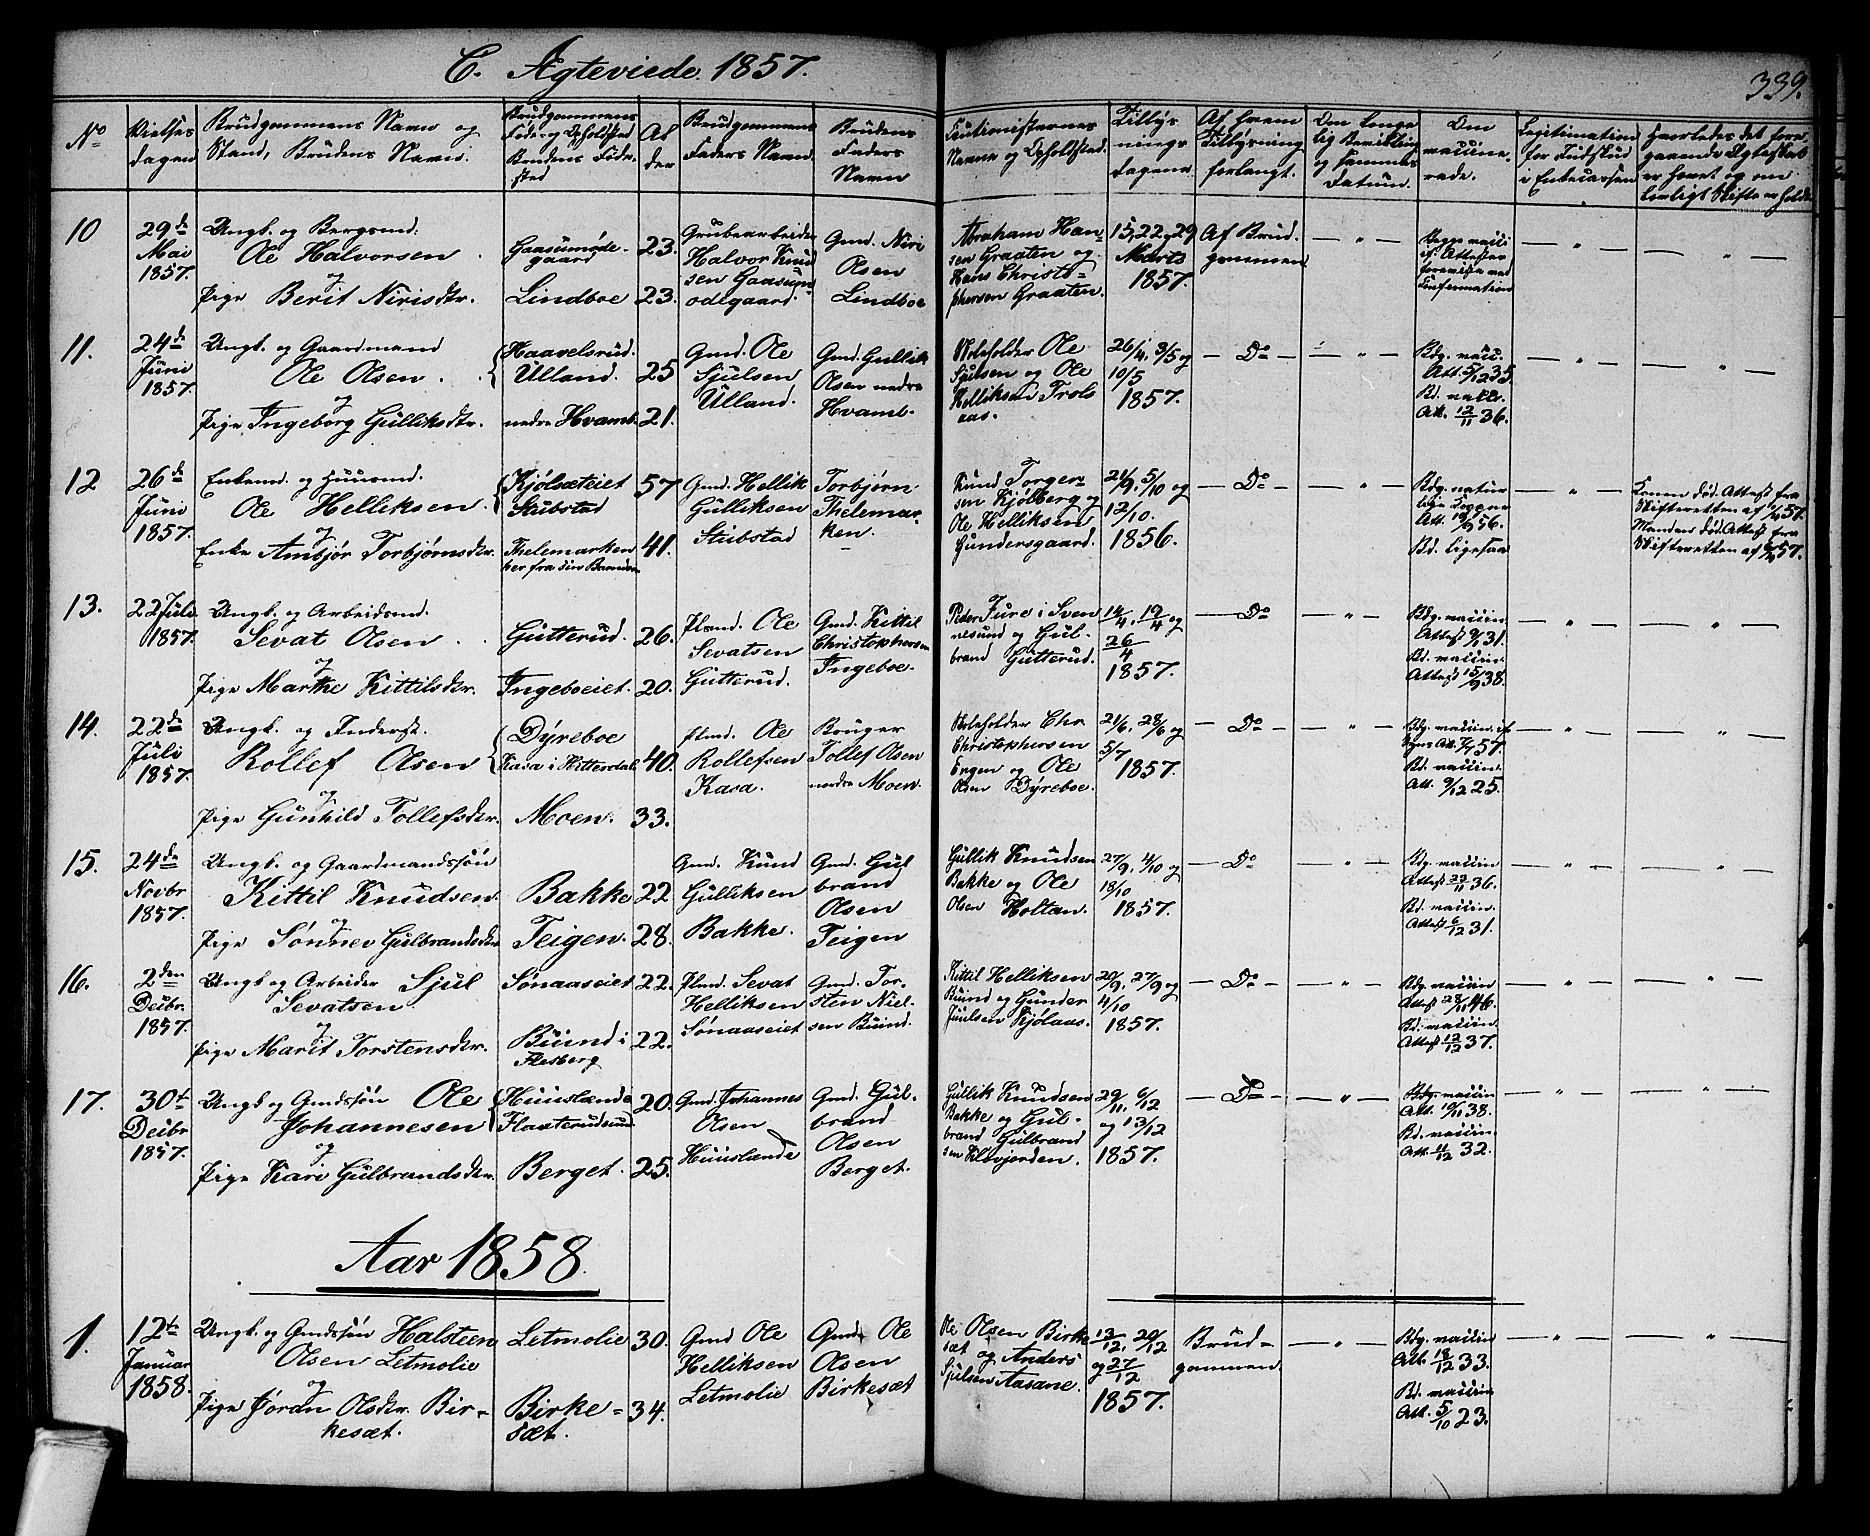 C. Ægteviede 1857.
339.
No
Vielses dagen
Brudgommens Navn og Stand, Brudens Navn.
Brudgommens Føde- og Opholdsted Brudens Føde-sted
Alder
Brudgommens Faders Navn.
Brudens Faders Navn
Cautionisternes Navne og Opholdsted.
Tillysnings dagene.
Af hvem Tillysning forlangt.
Om lovgelig Bevilling og sammes Datum.
Om vaccinerede.
Legitimation for Indskud i Enkecassen
Hvorledes det foregaaende Ægteskab er hævet og om lovligt Skifte er holdt
10
29de Mai 1857.
Ungk. og Bergmd.
Ole Halvorsen
og
Pige Berit Nirisdtr.
Gaasumødegaard
Lindboe
23.
23.
Grubearbeider Halvor Knudsen Gaasumødegaard.
Gmd. Niri Olsen Lindboe
Abraham Hansen Graaten og Hans Christophersen Graaten.
15, 22 og 29 Marts 1857.
Af Brudgommen
— " —
Begge vacc. if. Attester foreviste ved Confirmation
— " —
— " —
11.
24de Juni 1857.
Ungk. og Gaardmand
Ole Olsen.
og
Pige Ingeborg Gulliksdtr.
Haavelsrud.
Ulland.
nedre Hvamb.
25
21.
Gmd. Ole Sjulsen Ulland.
Gmd. Gullik Olsen nedre Hvamb.
Skoleholder Ole Sjulsen og Ole Helliksen Trolsaas.
26/4, 3/5 og 10/5 1857.
— Do —
— " —
Bdg. vacc. Att. 5/12 35.
Bd. vacc. Att. 12/11 36.
— " —
— " —
12
26de Juni 1857.
Enkemd. og Huusmd.
Ole Helliksen
og
Enke Ambjør Torbjørnsdtr.
Kjølsæteiet
Stubstad
Thelemarken
her fra sin Barndom
57
41.
Gmd. Hellik Gulliksen Stubstad
Torbjørn Thelemarken.
Knud Torgersen Kjølberg og Ole Helliksen Gundersgaard.
21/9, 5/10 og 12/10. 1856.
— Do —
— " —
Bdg. naturlige Kopper Att. 19/9 56.
Bd. ligesaa
— " —
Konen død. Attest fra Skifteretten af 57.
Manden død. Attest fra Skifteretten af 57.
13.
22 Juli 1857.
Ungk. og Arbeidsmd.
Sevat Olsen
og
Pige Marthe Kittilsdtr.
Gutterud.
Ingeboeiet.
26.
20.
Plmd. Ole Sevatsen Gutterud.
Gmd. Kittil Christophersen Ingeboe.
Peder Fure i Svennesund og Gulbrand Gutterud.
14/4, 19/4 og 26/4 1857.
— Do —
— " —
Bdg. vaccin. Attest 9/1 31.
Bd. vaccin. Attest 15/9 38.
— " —
— " —
14.
22de Juli 1857.
Ungk. og Inderst.
Rollef Olsen
og
Pige Gunhild Tollefsdtr.
Dyreboe
Kasa i Hitterdal.
Moen.
40.
33.
Plmd. Ole Rollefsen Kasa.
Bruger Tollef Olsen nedre Moen.
Skoleholder Chr. Christophersen Engen og Ole Olsen Dyreboe.
21/6, 28/6 og 5/7 1857.
— Do —
— " —
Bdg. vaccin. if. Att. 7/7 57.
Bd. vaccin. Att. 9/12 25.
— " —
— " —
15.
24de Novbr 1857.
Ungk. og Gaardmandssøn
Kittil Knudsen.
og
Pige Sønnev Gulbrandsdtr
Bakke
Teigen.
22
28.
Gmd. Knud Gulliksen Bakke.
Gmd. Gulbrand Olsen Teigen
Gullik Knudsen Bakke og Ole Olsen Holtan.
27/9, 4/10 og 18/10 1857.
— Do
— " —
Bdg. vaccin Attest 22/11 36.
Bd. vaccin. Attest 6/12 31.
— " —
— " —
16.
2den Decbr. 1857.
Ungk og Arbeider Sjul Sevatsen
og
Pige Marit Torstensdtr.
Sønaaseiet
Buind i Flesberg
22.
22.
Plmd. Sevat Helliksen Sønaaseiet
Gmd. Torsten Nielsen Buind.
Kittil Helliksen Buind og Gunder Juulsen Kjølaas.
20/9, 27/9 og 4/10 1857.
— Do —
— " —
Bdg. vaccin Attest 28/11 46.
Bd. vaccin. Attest 12/12 37.
— " —
— " —
17.
30t Decbr 1857.
Ungk og Gmdssøn Ole Johannesen
og
Pige Kari Gulbrandsdtr.
Huuslænde
Flaaterudsund
Berget.
20.
25.
Gmd. Johannes Olsen Huuslænde
Gmd. Gulbrand Olsen Berget.
Gullik Knudsen Bakke og Gulbrand Gulbrandsen Vilbojorden.
29/11, 6/12 og 13/12 1857.
— Do —
— " —
Bdg. vaccin Att. 10/11 38.
Bd. vaccin Att. 11/12 32.
— " —
— " —
Aar 1858.
1.
12te Januar 1858.
Ungk. og Gmdssøn Halsteen Olsen Letmolie
og
Pige Jøran Olsdtr. Birkesæt.
Letmolie
Birkesæt.
30.
34.
Gmd Ole Helliksen Letmolie
Gmd. Ole Olsen Birkesæt
Ole Olsen Birkesæt og Anders Sjulsen Aasane.
13/12, 20/12 og 27/12 1857.
Brudgommen
— " —
Bdg. vaccin Att. 18/12 33.
Bd. vaccin Att. 5/10 23.
— " —
— " —